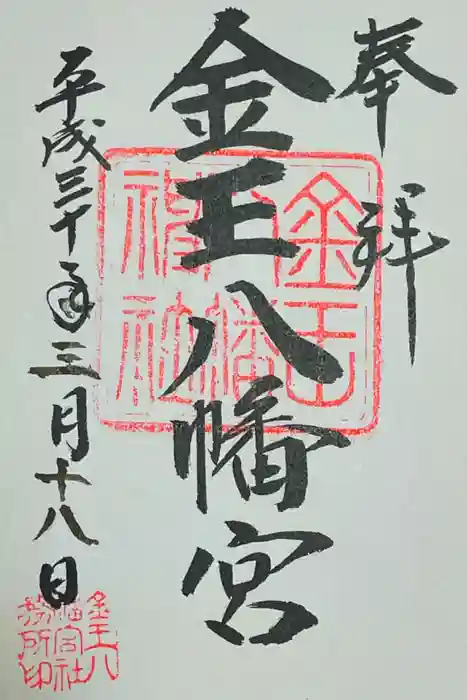 奉拝
金王八幡宮
平成三十年三月十八日
金王八幡神社
金王八幡宮社務所印